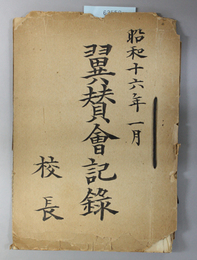 昭和十六年一月
翼賛會記錄
校長